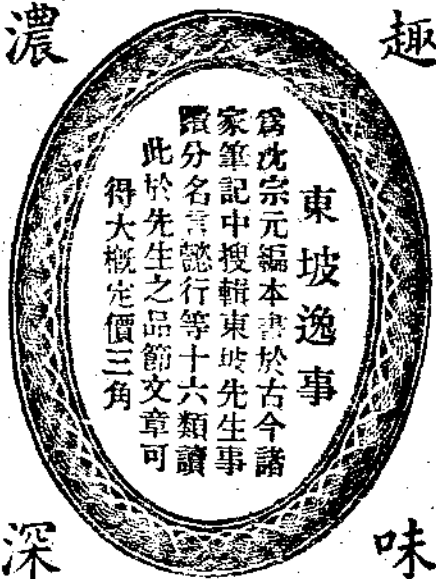 趣味
濃深
東坡逸事
為沈宗元編本書於古今諸
家筆記中搜輯東坡先生事
蹟分名言懿行等十六類讀
此於先生之品節文章可
得大概定價三角